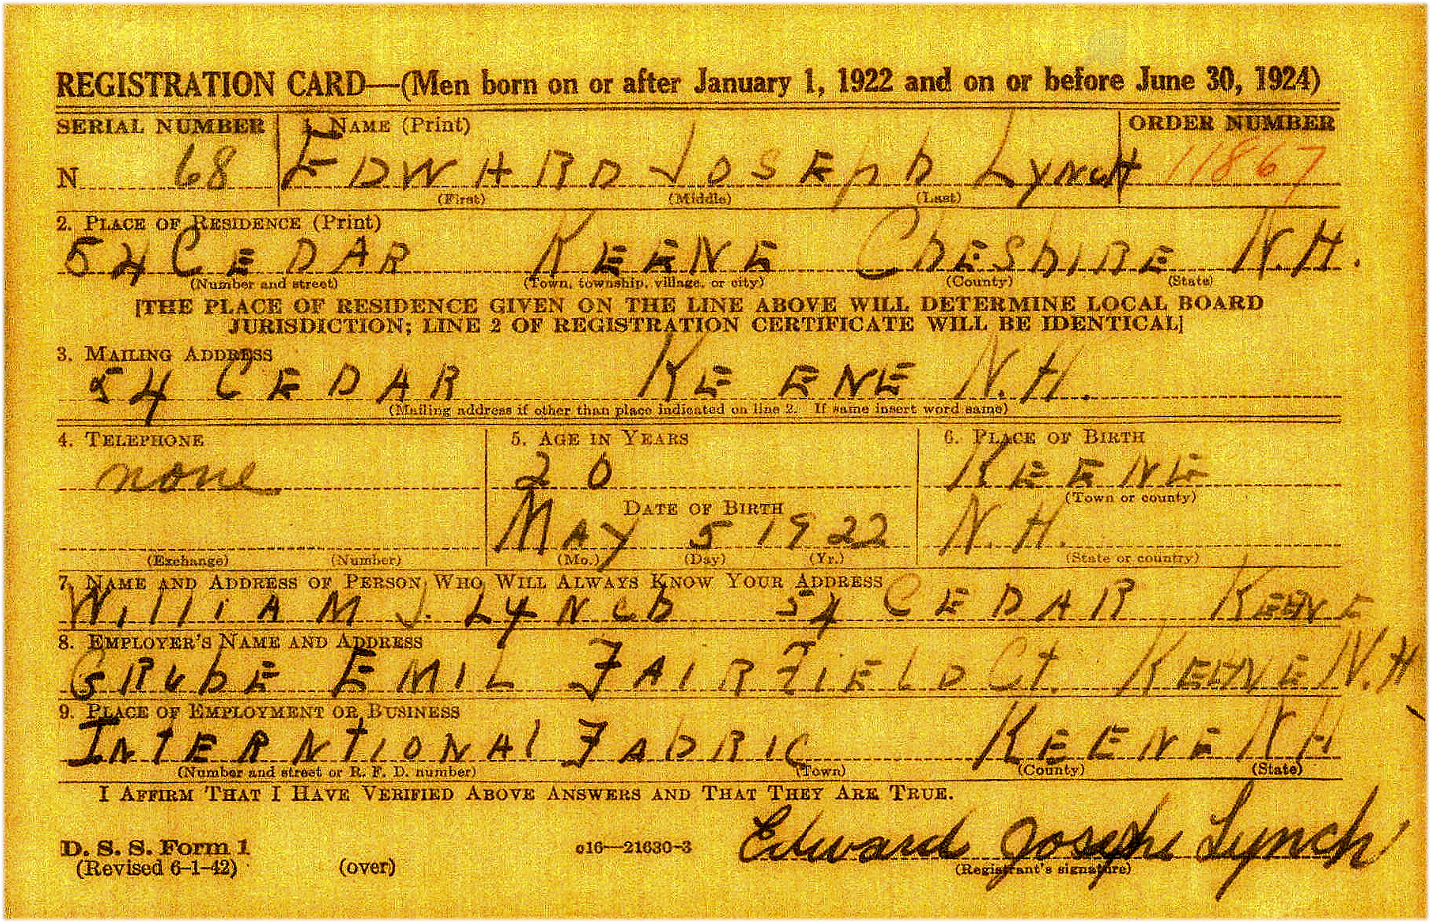 REGISTRATION CARD—(Men born on or after January 1, 1922 and on or before June 30, 1924)
SERIAL NUMBER 1. NAME (Print) ORDER NUMBER
N 68 EDWARD JOSEPH LYNCH 11867
(First) (Middle) (Last)
2. PLACE OF RESIDENCE (Print)
54 CEDAR KEENE CHESHIRE N.H.
(Number and street) (Town, township, village, or city) (County) (State)
[THE PLACE OF RESIDENCE GIVEN ON THE LINE ABOVE WILL DETERMINE LOCAL BOARD
JURISDICTION; LINE 2 OF REGISTRATION CERTIFICATE WILL BE IDENTICAL]
3. MAILING ADDRESS
54 CEDAR KEENE N.H.
(Mailing address if other than place indicated on line 2. If same insert word same)
4. TELEPHONE 5. AGE IN YEARS 6. PLACE OF BIRTH
none 20 KEENE
(Town or county)
DATE OF BIRTH
MAY 5 1922 N.H.
(Exchange) (Number) (Mo.) (Day) (Yr.) (State or country)
7. NAME AND ADDRESS OF PERSON WHO WILL ALWAYS KNOW YOUR ADDRESS
WILLIAM J. LYNCH 54 CEDAR KEENE
8. EMPLOYER'S NAME AND ADDRESS
GRUBE EMIL FAIRFIELD Ct. KEENE N.H
9. PLACE OF EMPLOYMENT OR BUSINESS
INTERNTIONAL FABRIC KEENE NH
(Number and street or R. F. D. number) (Town) (County) (State)
I AFFIRM THAT I HAVE VERIFIED ABOVE ANSWERS AND THAT THEY ARE TRUE.
Edward Joseph Lynch
D. S. S. Form 1
(Revised 6-1-42) (over) c16—21630-3 (Registrant's signature)